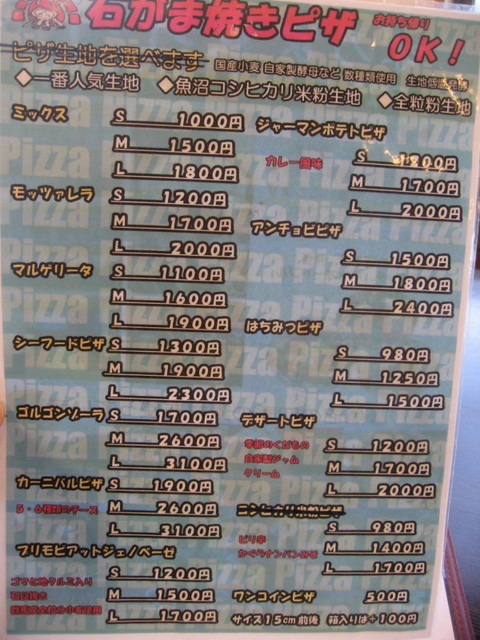 石がま焼きピザ
お持ち帰り
OK!
ピザ生地を選べます
国産小麦 自家製酵母など 数種類使用 生地低温発酵
◆一番人気生地 ◆魚沼コシヒカリ米粉生地 ◆全粒粉生地
ミックス S 1000円
M 1500円
L 1800円
モッツァレラ S 1200円
M 1700円
L 2000円
マルゲリータ S 1100円
M 1600円
L 1900円
シーフードピザ S 1300円
M 1900円
L 2300円
ゴルゴンゾーラ S 1700円
M 2600円
L 3100円
カーニバルピザ S 1900円
5・6種類のチーズ M 2600円
L 3100円
プリモピアットジェノベーゼ
S 1200円
M 1500円
L 1700円
ジャーマンポテトピザ
カレー風味 S 1200円
M 1700円
L 2000円
アンチョビピザ
S 1500円
M 1800円
L 2400円
はちみつピザ
S 980円
M 1250円
L 1500円
デザートピザ
季節のくだもの S 1200円
自家製ジャム M 1700円
クリーム
L 2000円
コシヒカリ米粉ピザ
S 980円
ピリ辛 M 1400円
L 1700円
ワンコインピザ 500円
サイズ15cm前後 箱入りは+100円